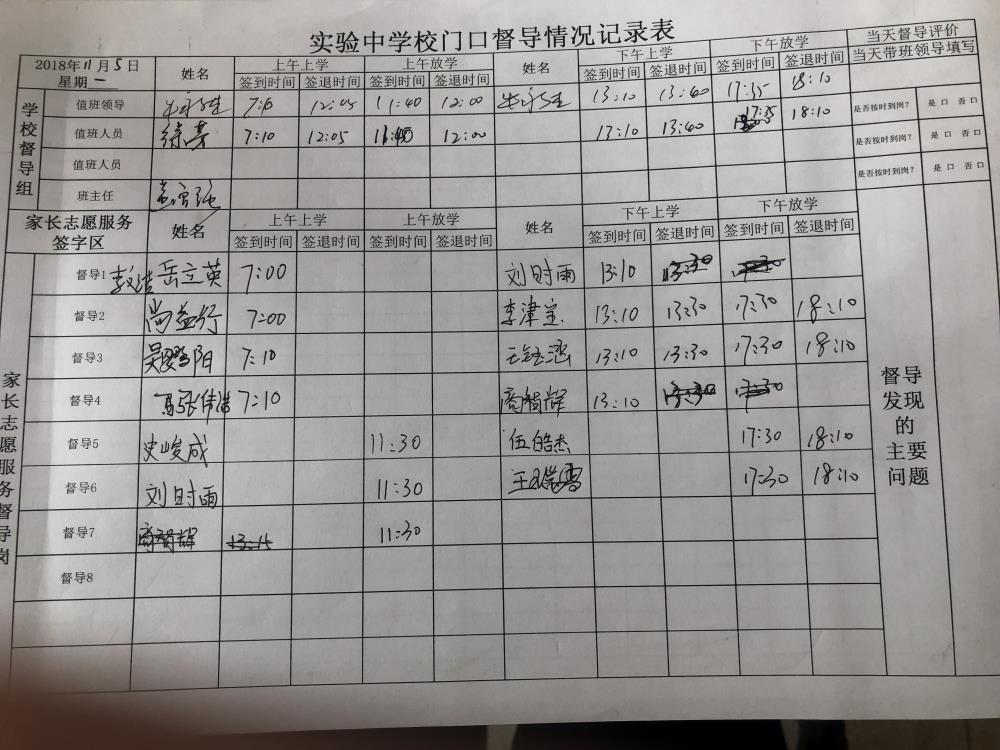 实验中学校门口督导情况记录表
2018年11月5日 星期一 姓名 上午上学 上午放学 姓名 下午上学 下午放学 当天督导评价
签到时间 签退时间 签到时间 签退时间 签到时间 签退时间 签到时间 签退时间 当天带班领导填写
学校督导组
值班领导 12:05 11:40 12:00 13:10 13:40 17:35 18:10 是否按时到岗? 是口 否口
值班人员 7:10 12:05 11:40 12:00 13:10 13:40 17:35 18:10 是否按时到岗? 是口 否口
值班人员 是否按时到岗? 是口 否口
班主任
家长志愿服务签字区 姓名 上午上学 上午放学 姓名 下午上学 下午放学
签到时间 签退时间 签到时间 签退时间 签到时间 签退时间 签到时间 签退时间
家长志愿服务督导岗
督导1 岳立英 7:00 刘时雨 13:10 13:30 17:30
督导2 尚益行 7:00 李津宝 13:10 13:30 17:30 18:10
督导3 7:10 13:10 13:30 17:30 18:10
督导4 7:10 商祯辉 13:10 13:30 17:30
督导5 史峻成 11:30 伍皓杰 17:30 18:10
督导6 刘时雨 11:30 17:30 18:10
督导7 商祯辉 13:15 11:30
督导8
督导发现的主要问题